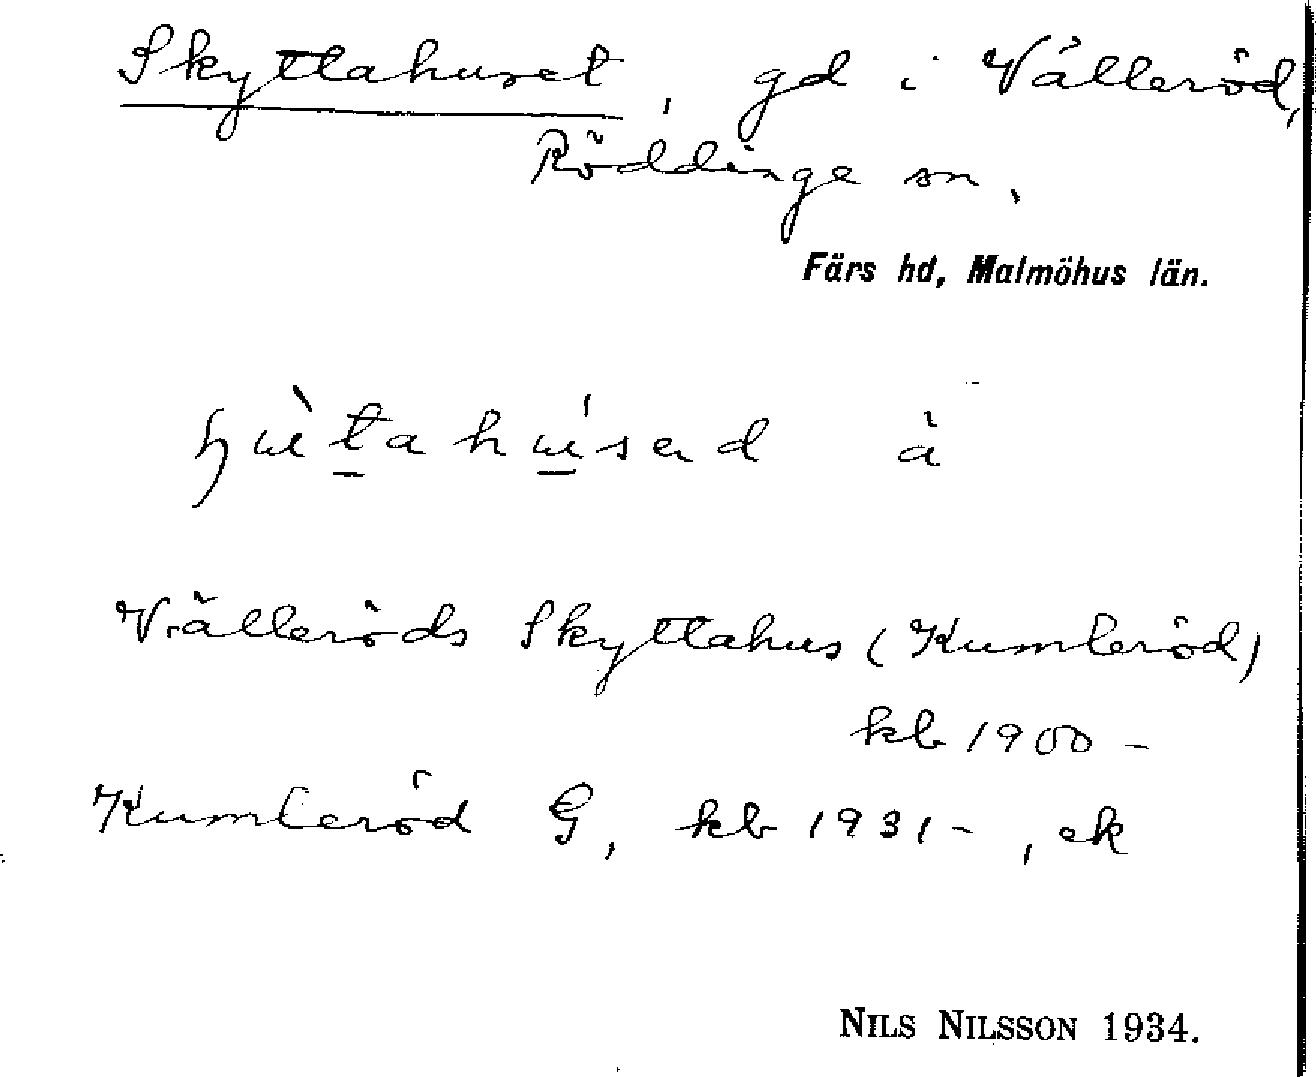 Skyttahuset, gd i Välleröd,
Röddinge sn.
Färs hd, Malmöhus län.
à
Välleröds Skyttahus (Kumleröd)
kb 1900 -
Kumleröd G, kb 1931 -, ek
NILS NILSSON 1934.